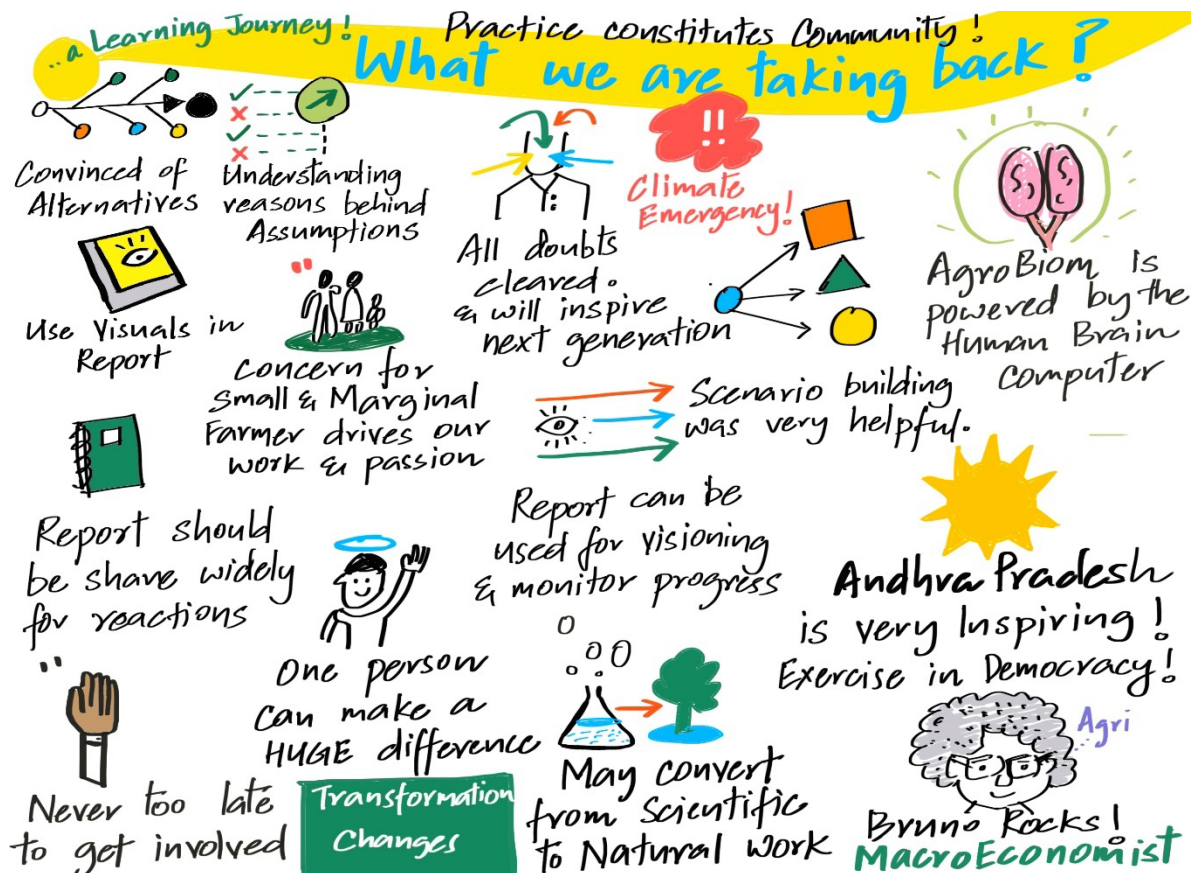 ..a Learning Journey!
Practice constitutes Community!
What we are taking back?
Convinced of
Alternatives
Understanding
reasons behind
Assumptions
All doubts
cleared.
& will inspire
next generation
!!
Climate
Emergency!
AgroBiom is
powered by the
Human Brain
Computer
Use Visuals in
Report
Concern for
Small & Marginal
Farmer drives our
work & passion
Scenario building
was very helpful.
Report should
be share widely
for reactions
Report can be
used for visioning
& monitor progress
Andhra Pradesh
is very Inspiring!
Exercise in Democracy!
One person
can make a
HUGE difference
Never too late
to get involved
Transformation
Changes
May convert
from Scientific
to Natural work
Agri
Bruno Rocks!
MacroEconomist